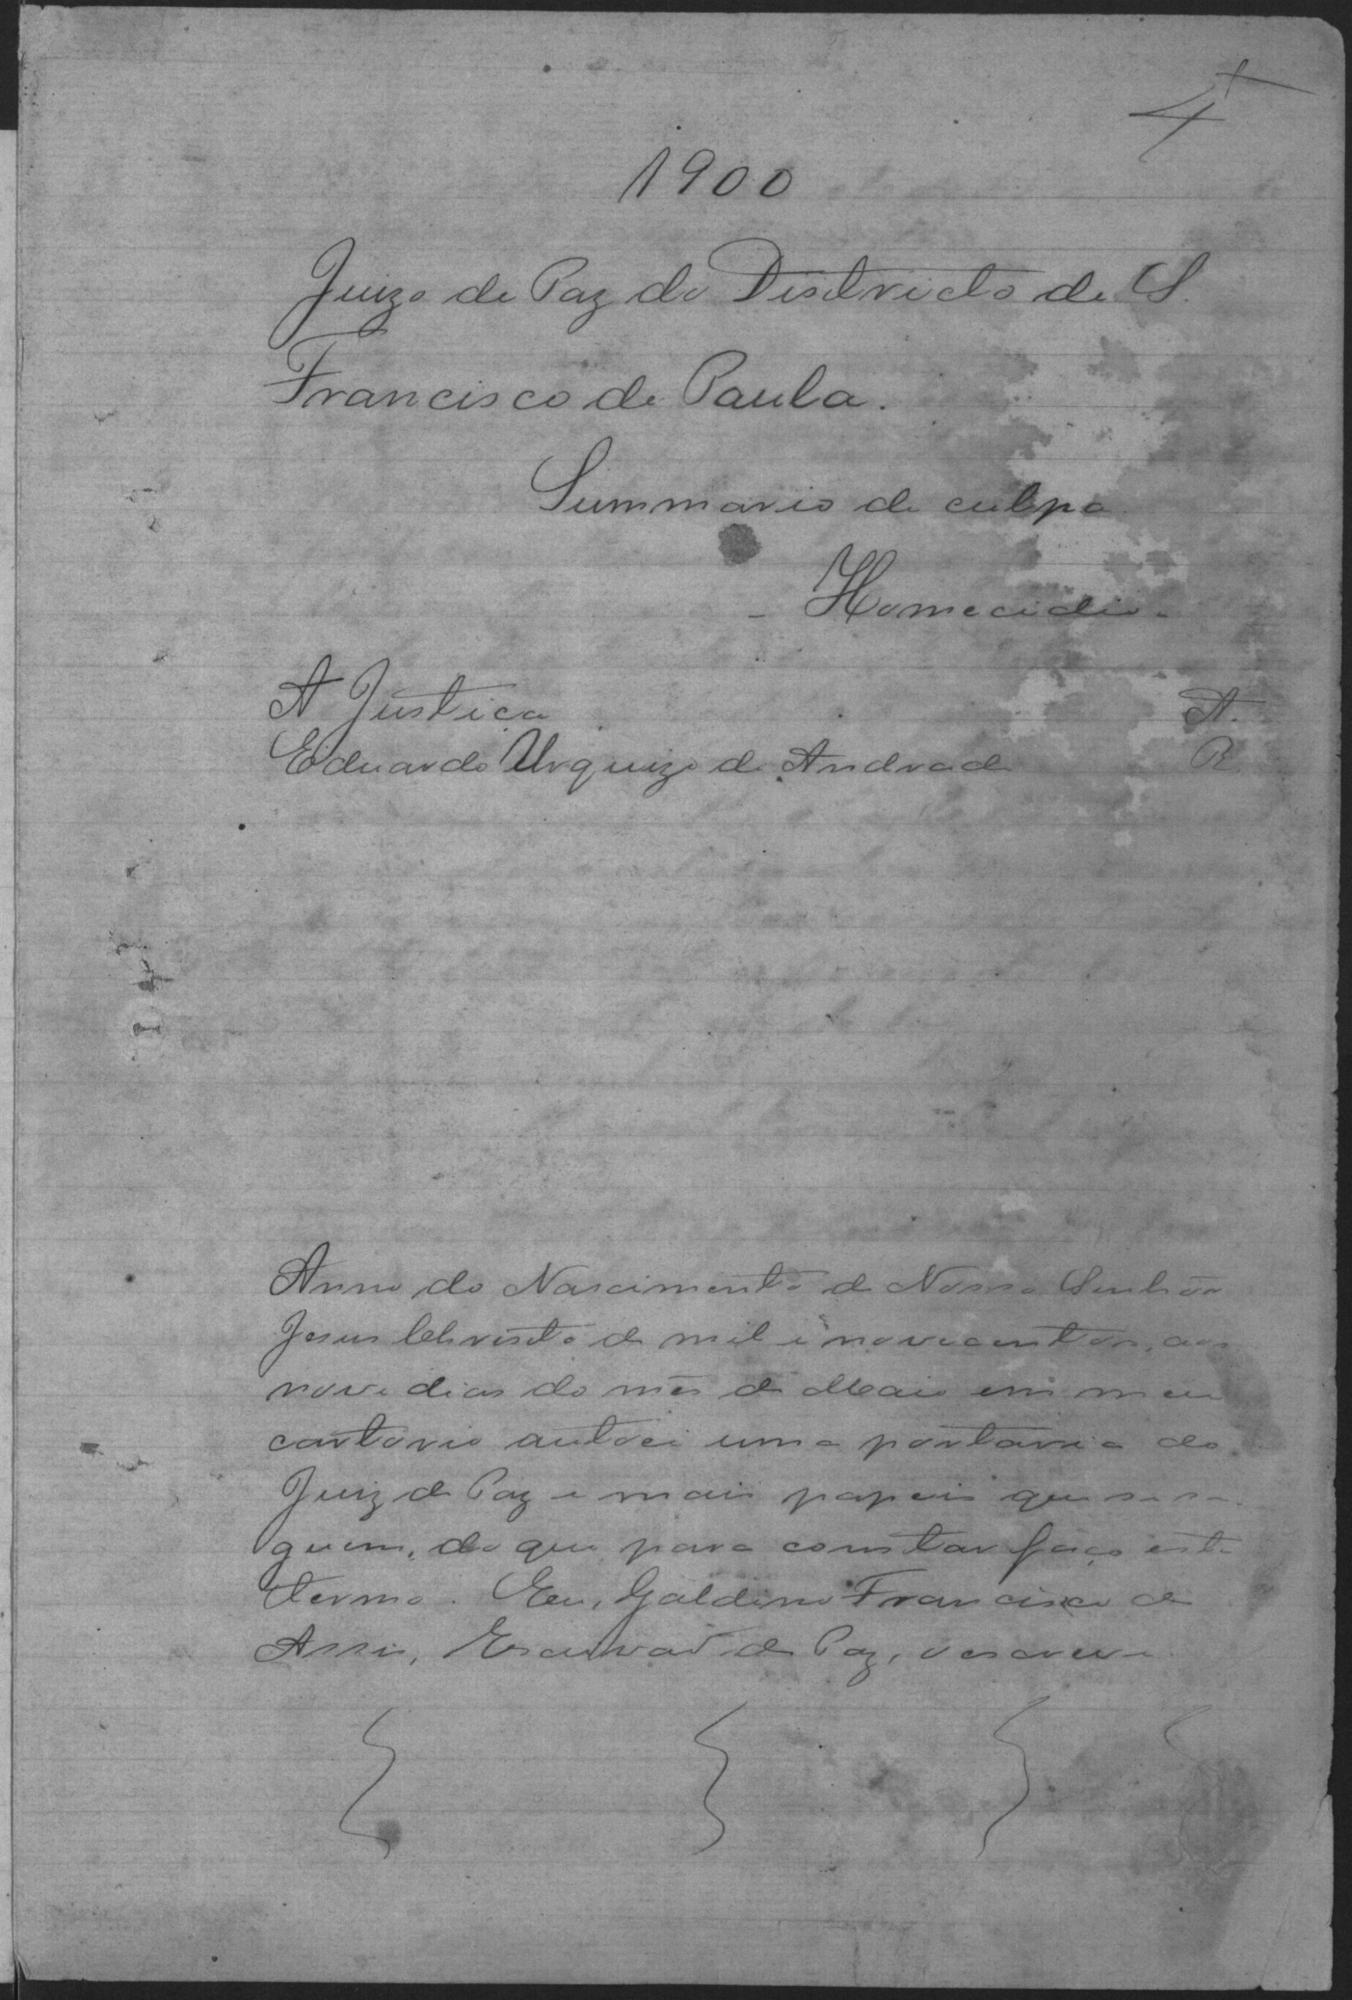 4
1900
Juizo de Paz do Districto de S.
Francisco de Paula.
Summario de culpa
- Homecidio -
A Justiça A.
Eduardo Urquizo de Andrade R
Anno do Nascimento de Nosso Senhor
Jesus Christo de mil e novecentos, aos
nove dias do mês de Maio em meu
cartorio autoei uma portaria do
Juiz de Paz e mais papeis que se se-
guem, do que para constar faço este
termo. Eu, Galdino Francisco de
Assis, Escrivão de Paz, o escrevi